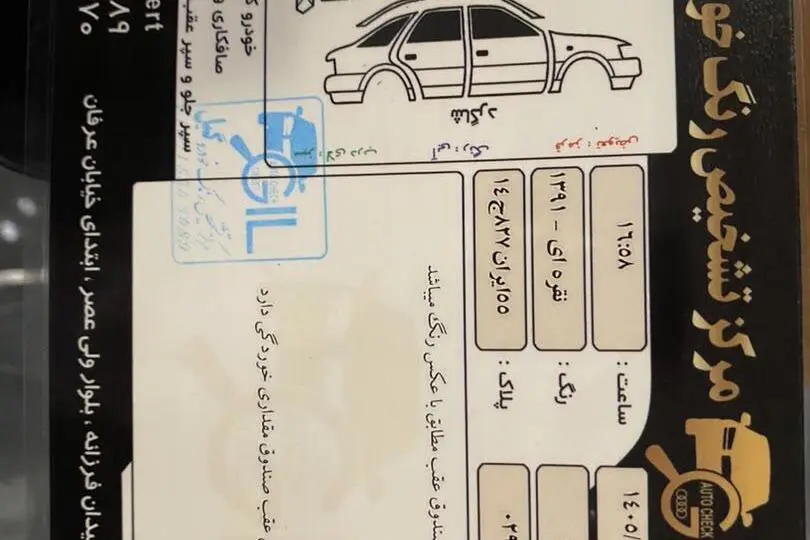 مرکز تشخیص رنگ خو
AUTO CHECK
۱۴۰۵/
ساعت :
۱۶:۵۸
رنگ :
نقره ای - ۱۳۹۱
پلاک :
۵۵ایران۸۳۷ج۱۴
تعویض : قرمز
رنگ : آبی
شاگرد
صندوق عقب مطابق با عکس رنگ میباشد
عقب صندوق مقداری خوردگی دارد
خودرو
صافکاری و
سپر جلو و سپر عقب
GIL
AUTO CHECK
ert
۸۹
۷۰
میدان فرزانه ، بلوار ولی عصر ، ابتدای خیابان عرفان